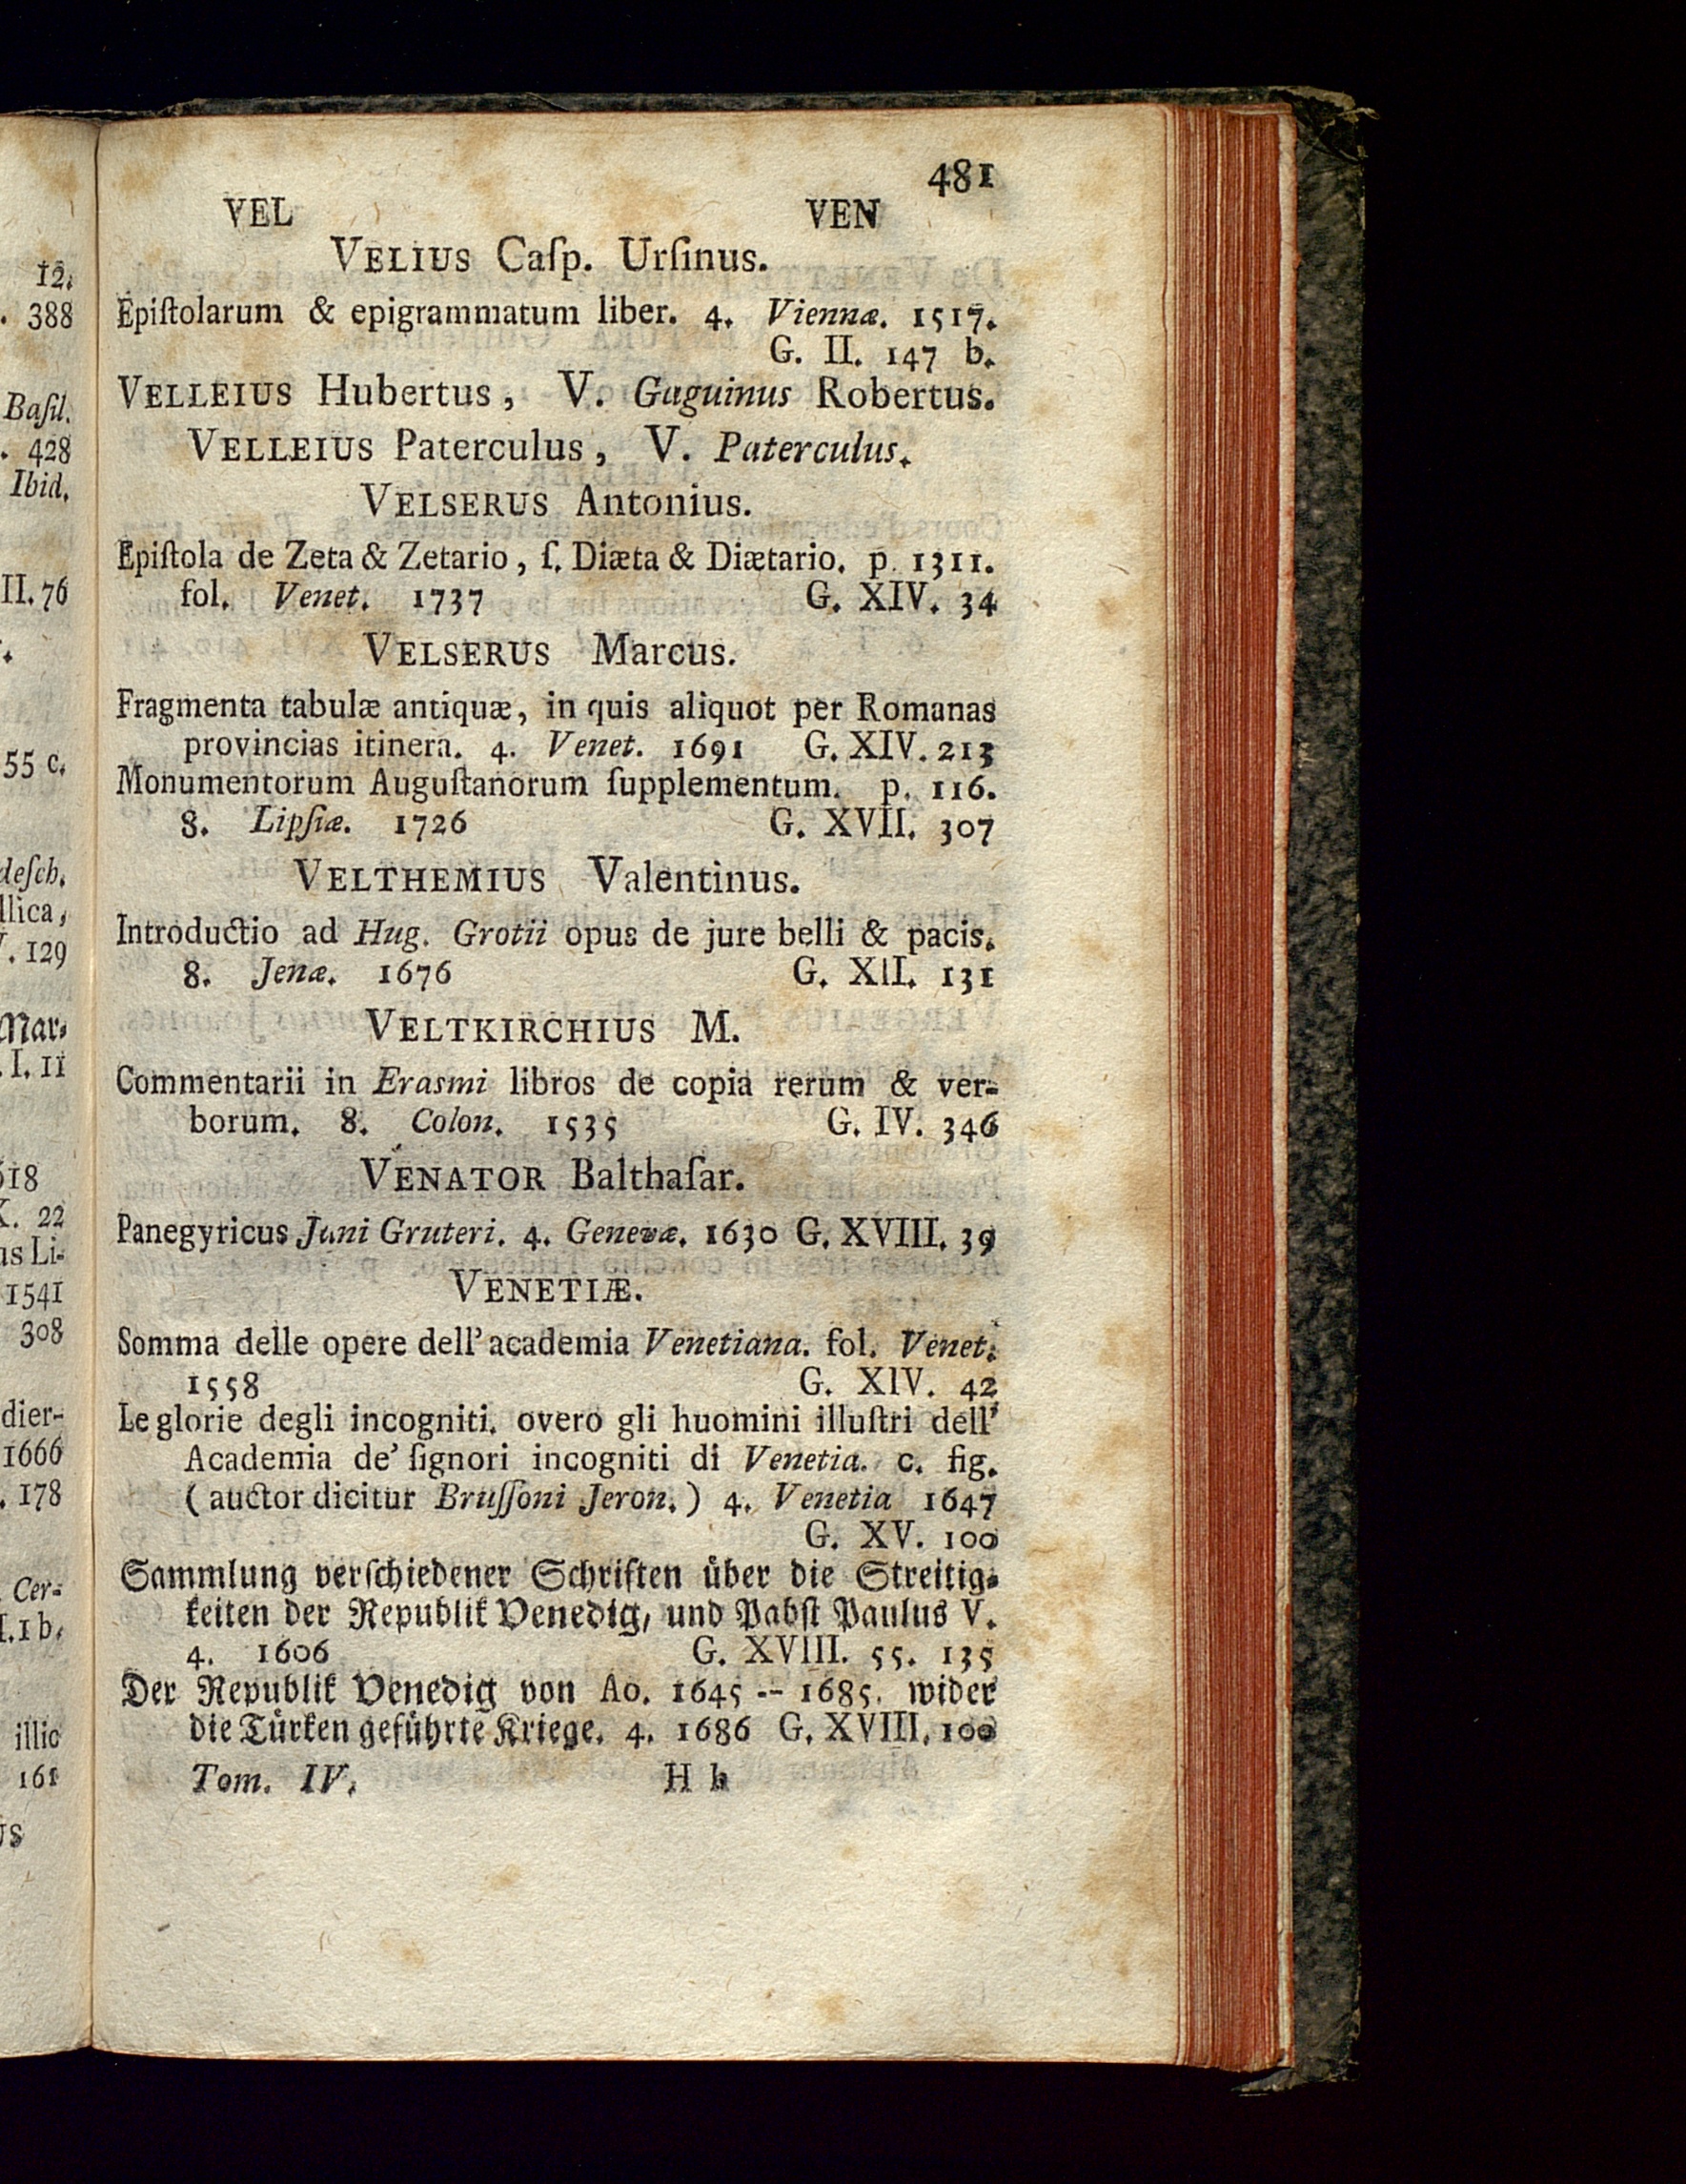 481
VEL VEN
VELIUS Caſp. Urſinus.
Epiſtolarum & epigrammatum liber. 4. Viennæ. 1517.
G. II. 147 b.
VELLEIUS Hubertus, V. Gaguinus Robertus.
VELLEIUS Paterculus, V. Paterculus.
VELSERUS Antonius.
Epiſtola de Zeta & Zetario, ſ. Diæta & Diætario. p. 1311.
fol. Venet. 1737 G. XIV. 34
VELSERUS Marcus.
Fragmenta tabulæ antiquæ, in quis aliquot per Romanas
provincias itinera. 4. Venet. 1691 G. XIV. 213
Monumentorum Auguſtanorum ſupplementum. p. 116.
8. Lipſiæ. 1726 G. XVII. 307
VELTHEMIUS Valentinus.
Introductio ad Hug. Grotii opus de jure belli & pacis.
8. Jenæ. 1676 G. XII. 131
VELTKIRCHIUS M.
Commentarii in Erasmi libros de copia rerum & ver-
borum. 8. Colon. 1535 G. IV. 346
VENATOR Balthaſar.
Panegyricus Jani Gruteri. 4. Genevæ. 1630 G. XVIII. 39
VENETIÆ.
Somma delle opere dell'academia Venetiana. fol. Venet.
1558 G. XIV. 42
Le glorie degli incogniti. overo gli huomini illuſtri dell'
Academia de' ſignori incogniti di Venetia. c. fig.
(auctor dicitur Bruſſoni Jeron.) 4. Venetia 1647
G. XV. 100
Sammlung verſchiedener Schriften über die Streitig-
keiten der Republik Venedig, und Pabſt Paulus V.
4. 1606 G. XVIII. 55. 135
Der Republik Venedig von Ao. 1645 -- 1685. wider
die Türken geführte Kriege. 4. 1686 G. XVIII. 100
Tom. IV. H h
12.
. 388
Baſil.
. 428
Ibid.
II. 76
55 c.
deſch.
llica,
. 129
Mar-
. I. 11
618
. 22
us Li-
1541
308
dier-
1666
. 178
Cer-
I. 1 b.
illic
161
US